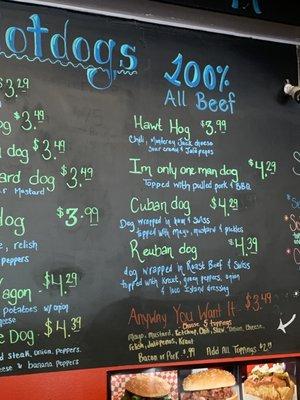 otdogs
$3.29
og $3.49
dog $3.49
ard dog $3.49
s Mustard
dog $3.99
, relish
peppers
agon $4.29
Potatoes w/ onion
e Dog $4.39
ed steak, Onion, Peppers
e and banana peppers
100%
All Beef
Hawt Hog $3.99
Chili, Monterey Jack cheese
sour cream & Jalapeños
I'm only one man dog $4.29
Topped with pulled pork & BBQ
Cuban dog $4.29
Dog wrapped in ham & Swiss
topped with mayo, mustard & pickles
Reuban dog $4.39
dog wrapped in Roast Beef & Swiss
topped with kraut, green peppers, onion
& 1000 Island dressing
Anyway You Want It... $3.49
Choose 5 toppings
Mayo, Mustard, Ketchup, Chili, Slaw, Onion, Cheese,
Relish, Jalapeños, Kraut
Bacon or Pork .99 Add All Toppings $2.19